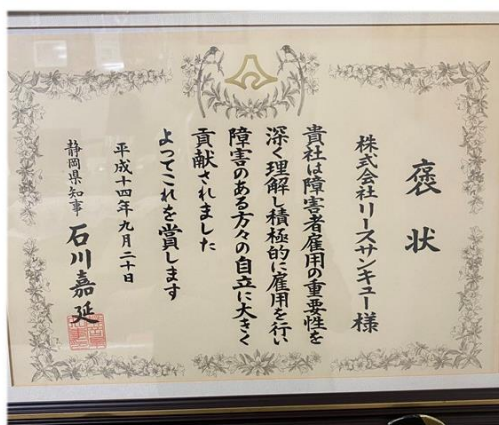 褒状
株式会社リースサンキュー様
貴社は障害者雇用の重要性を
深く理解し積極的に雇用を行い
障害のある方々の自立に大きく
貢献されました
よってこれを賞します
平成十四年九月二十日
静岡県知事 石川嘉延